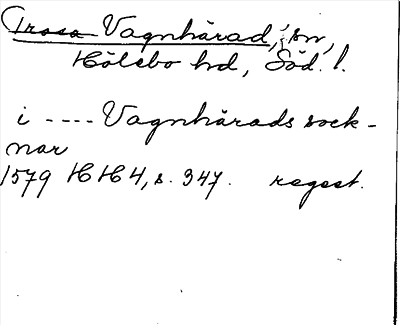 Trosa Vagnhärad, sn,
Hölebo hd, Söd. l.
i ---- Vagnhärads sock-
nar
1579 HH4, s. 347. regest.